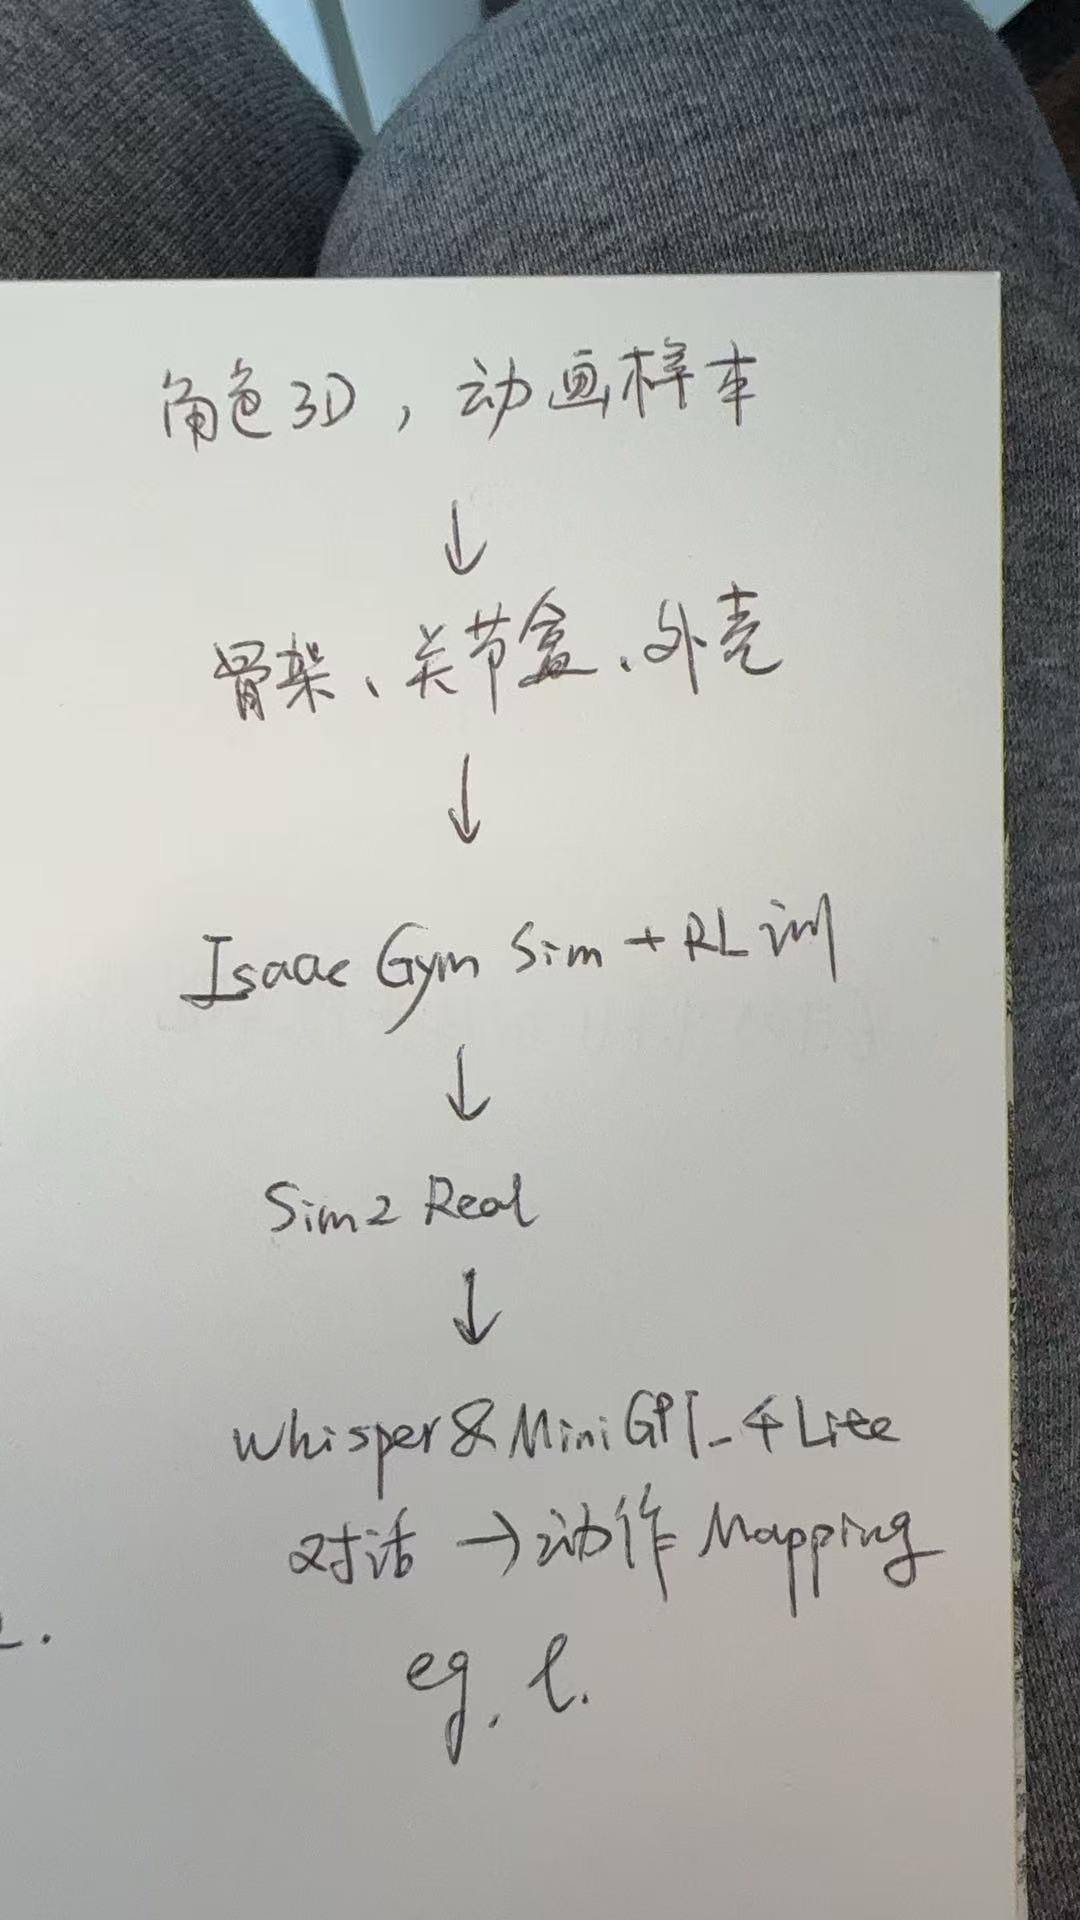 角色3D，动画样本
↓
骨架、关节盒、外壳
↓
Isaac Gym Sim + RL 训
↓
Sim2 Real
↓
Whisper & MiniGPT-4 Lite
对话 → 动作 Mapping
eg.